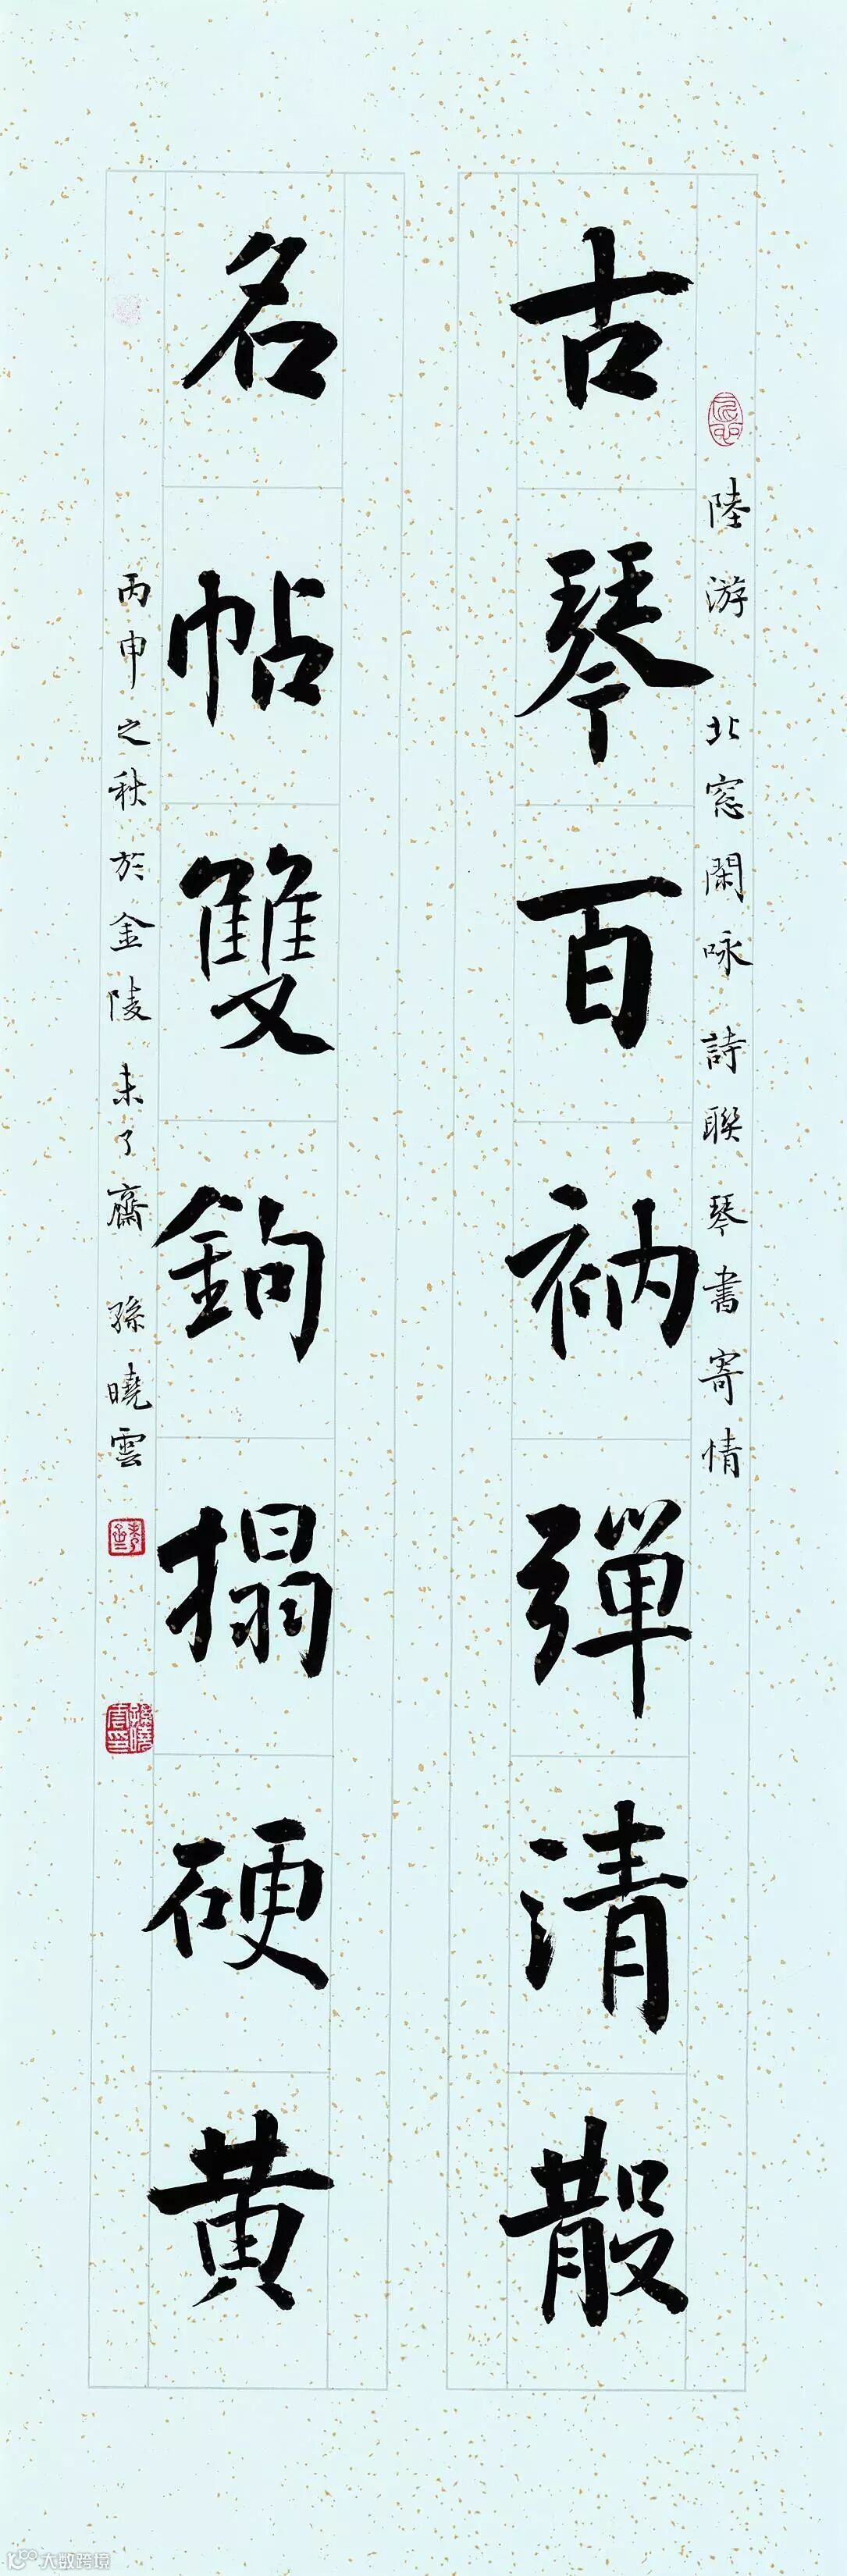 陸游北窓閑咏詩聯琴書寄情
古琴百衲彈清散
名帖雙鉤搨硬黄
丙申之秋於金陵未了齋孫曉雲
孫曉雲印
大数跨境